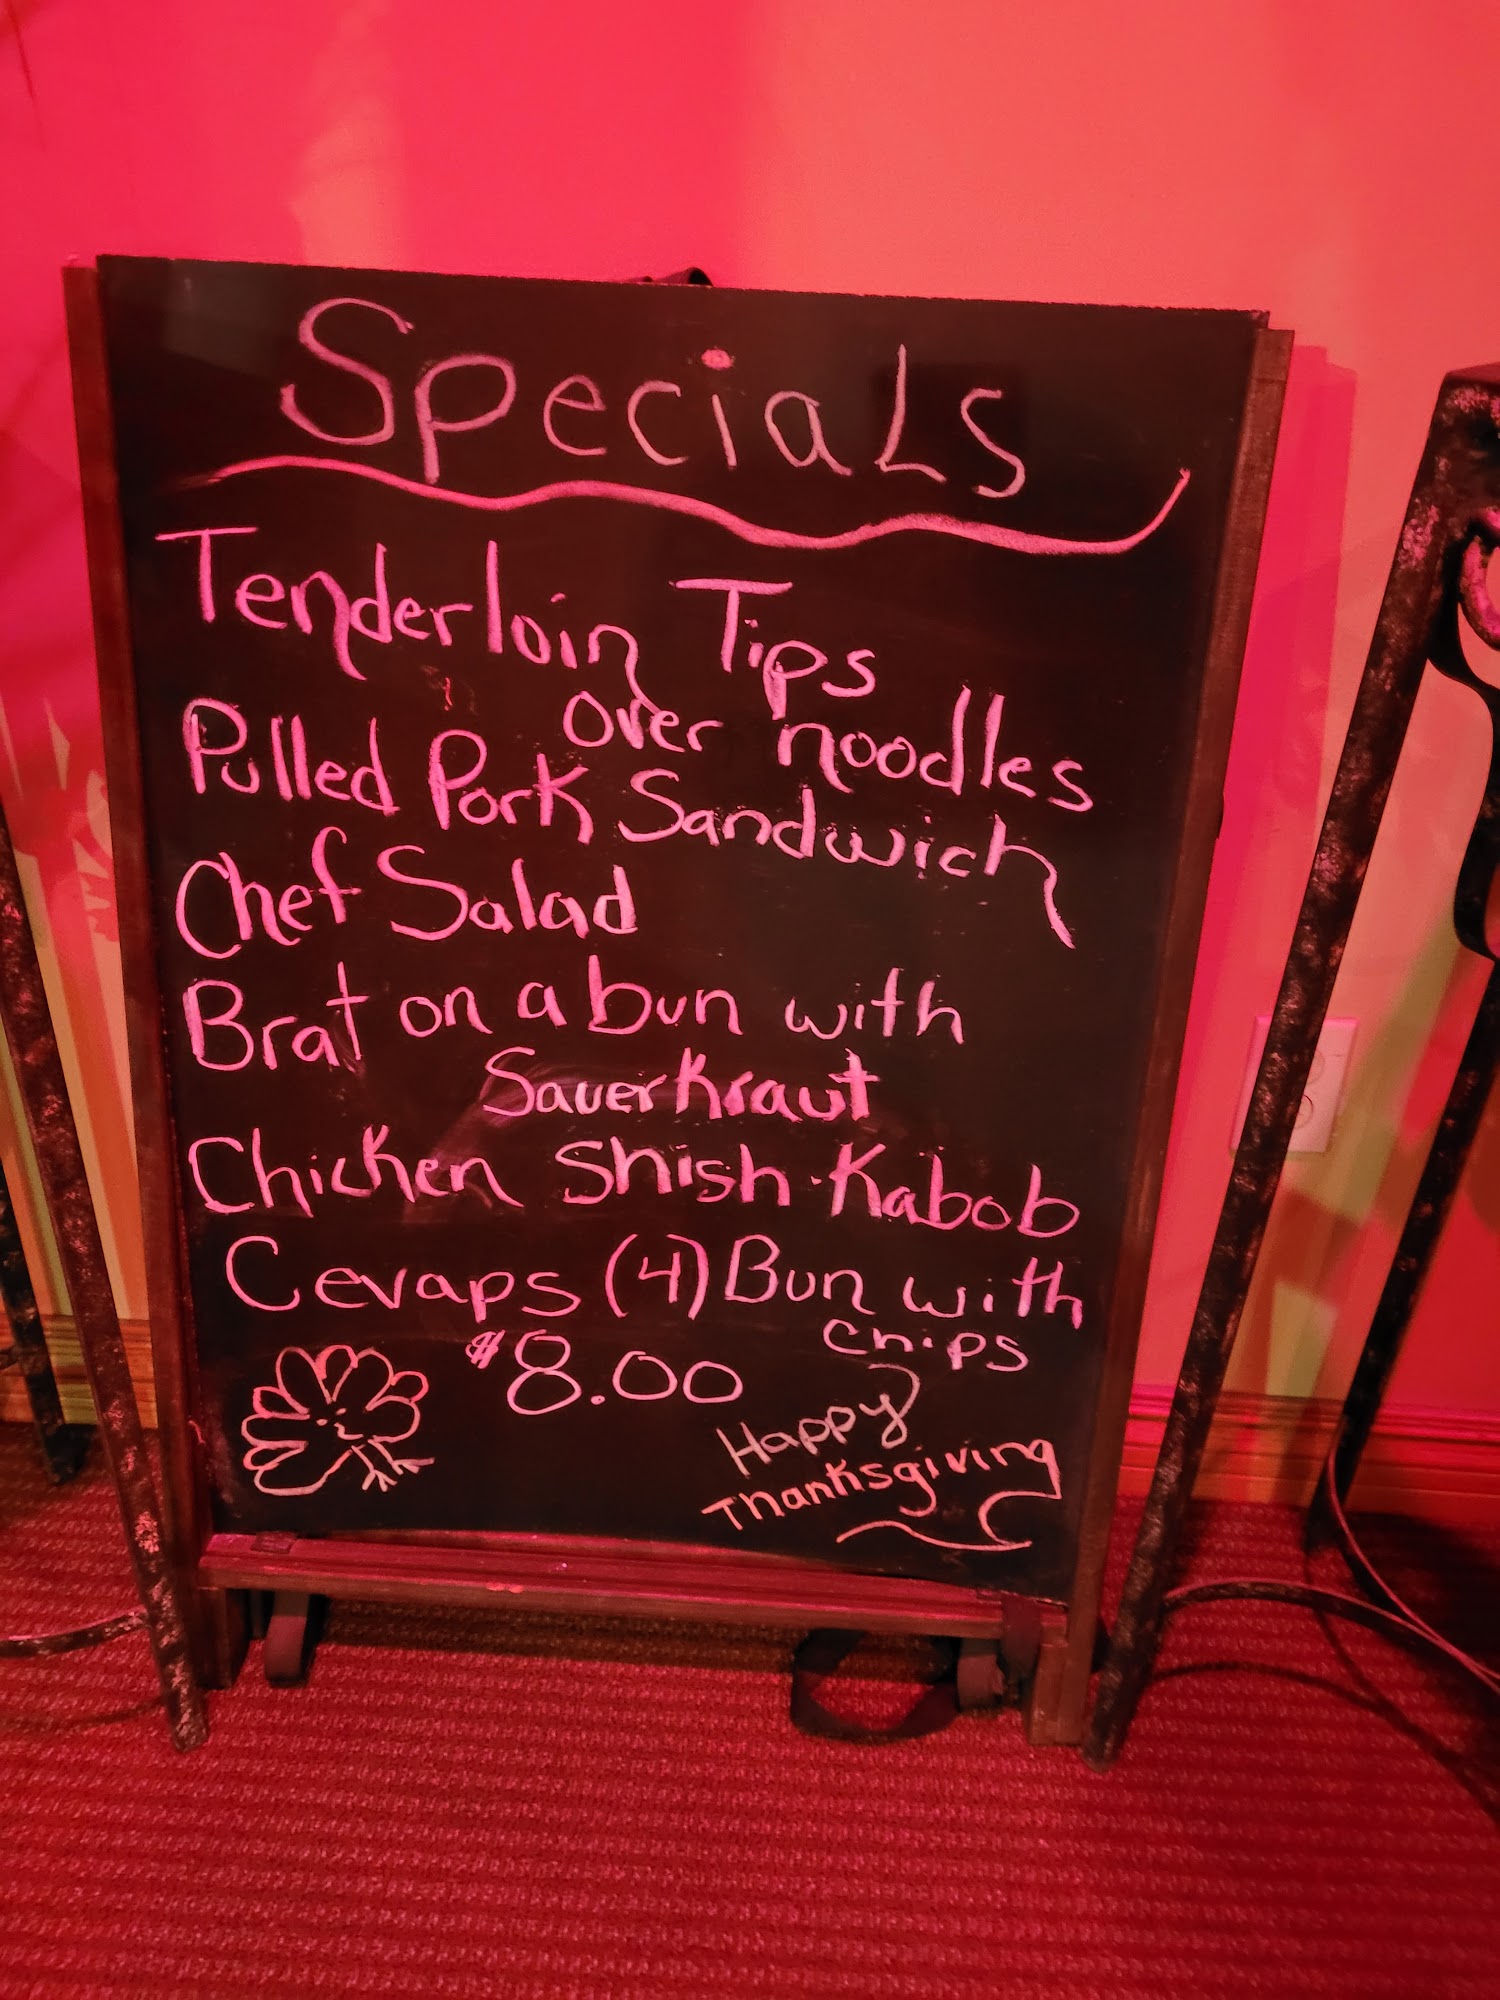 Specials
Tenderloin Tips
over noodles
Pulled Pork Sandwich
Chef Salad
Brat on a bun with
Sauerkraut
Chicken Shish-Kabob
Cevaps (4) Bun with
chips
$8.00
Happy
Thanksgiving